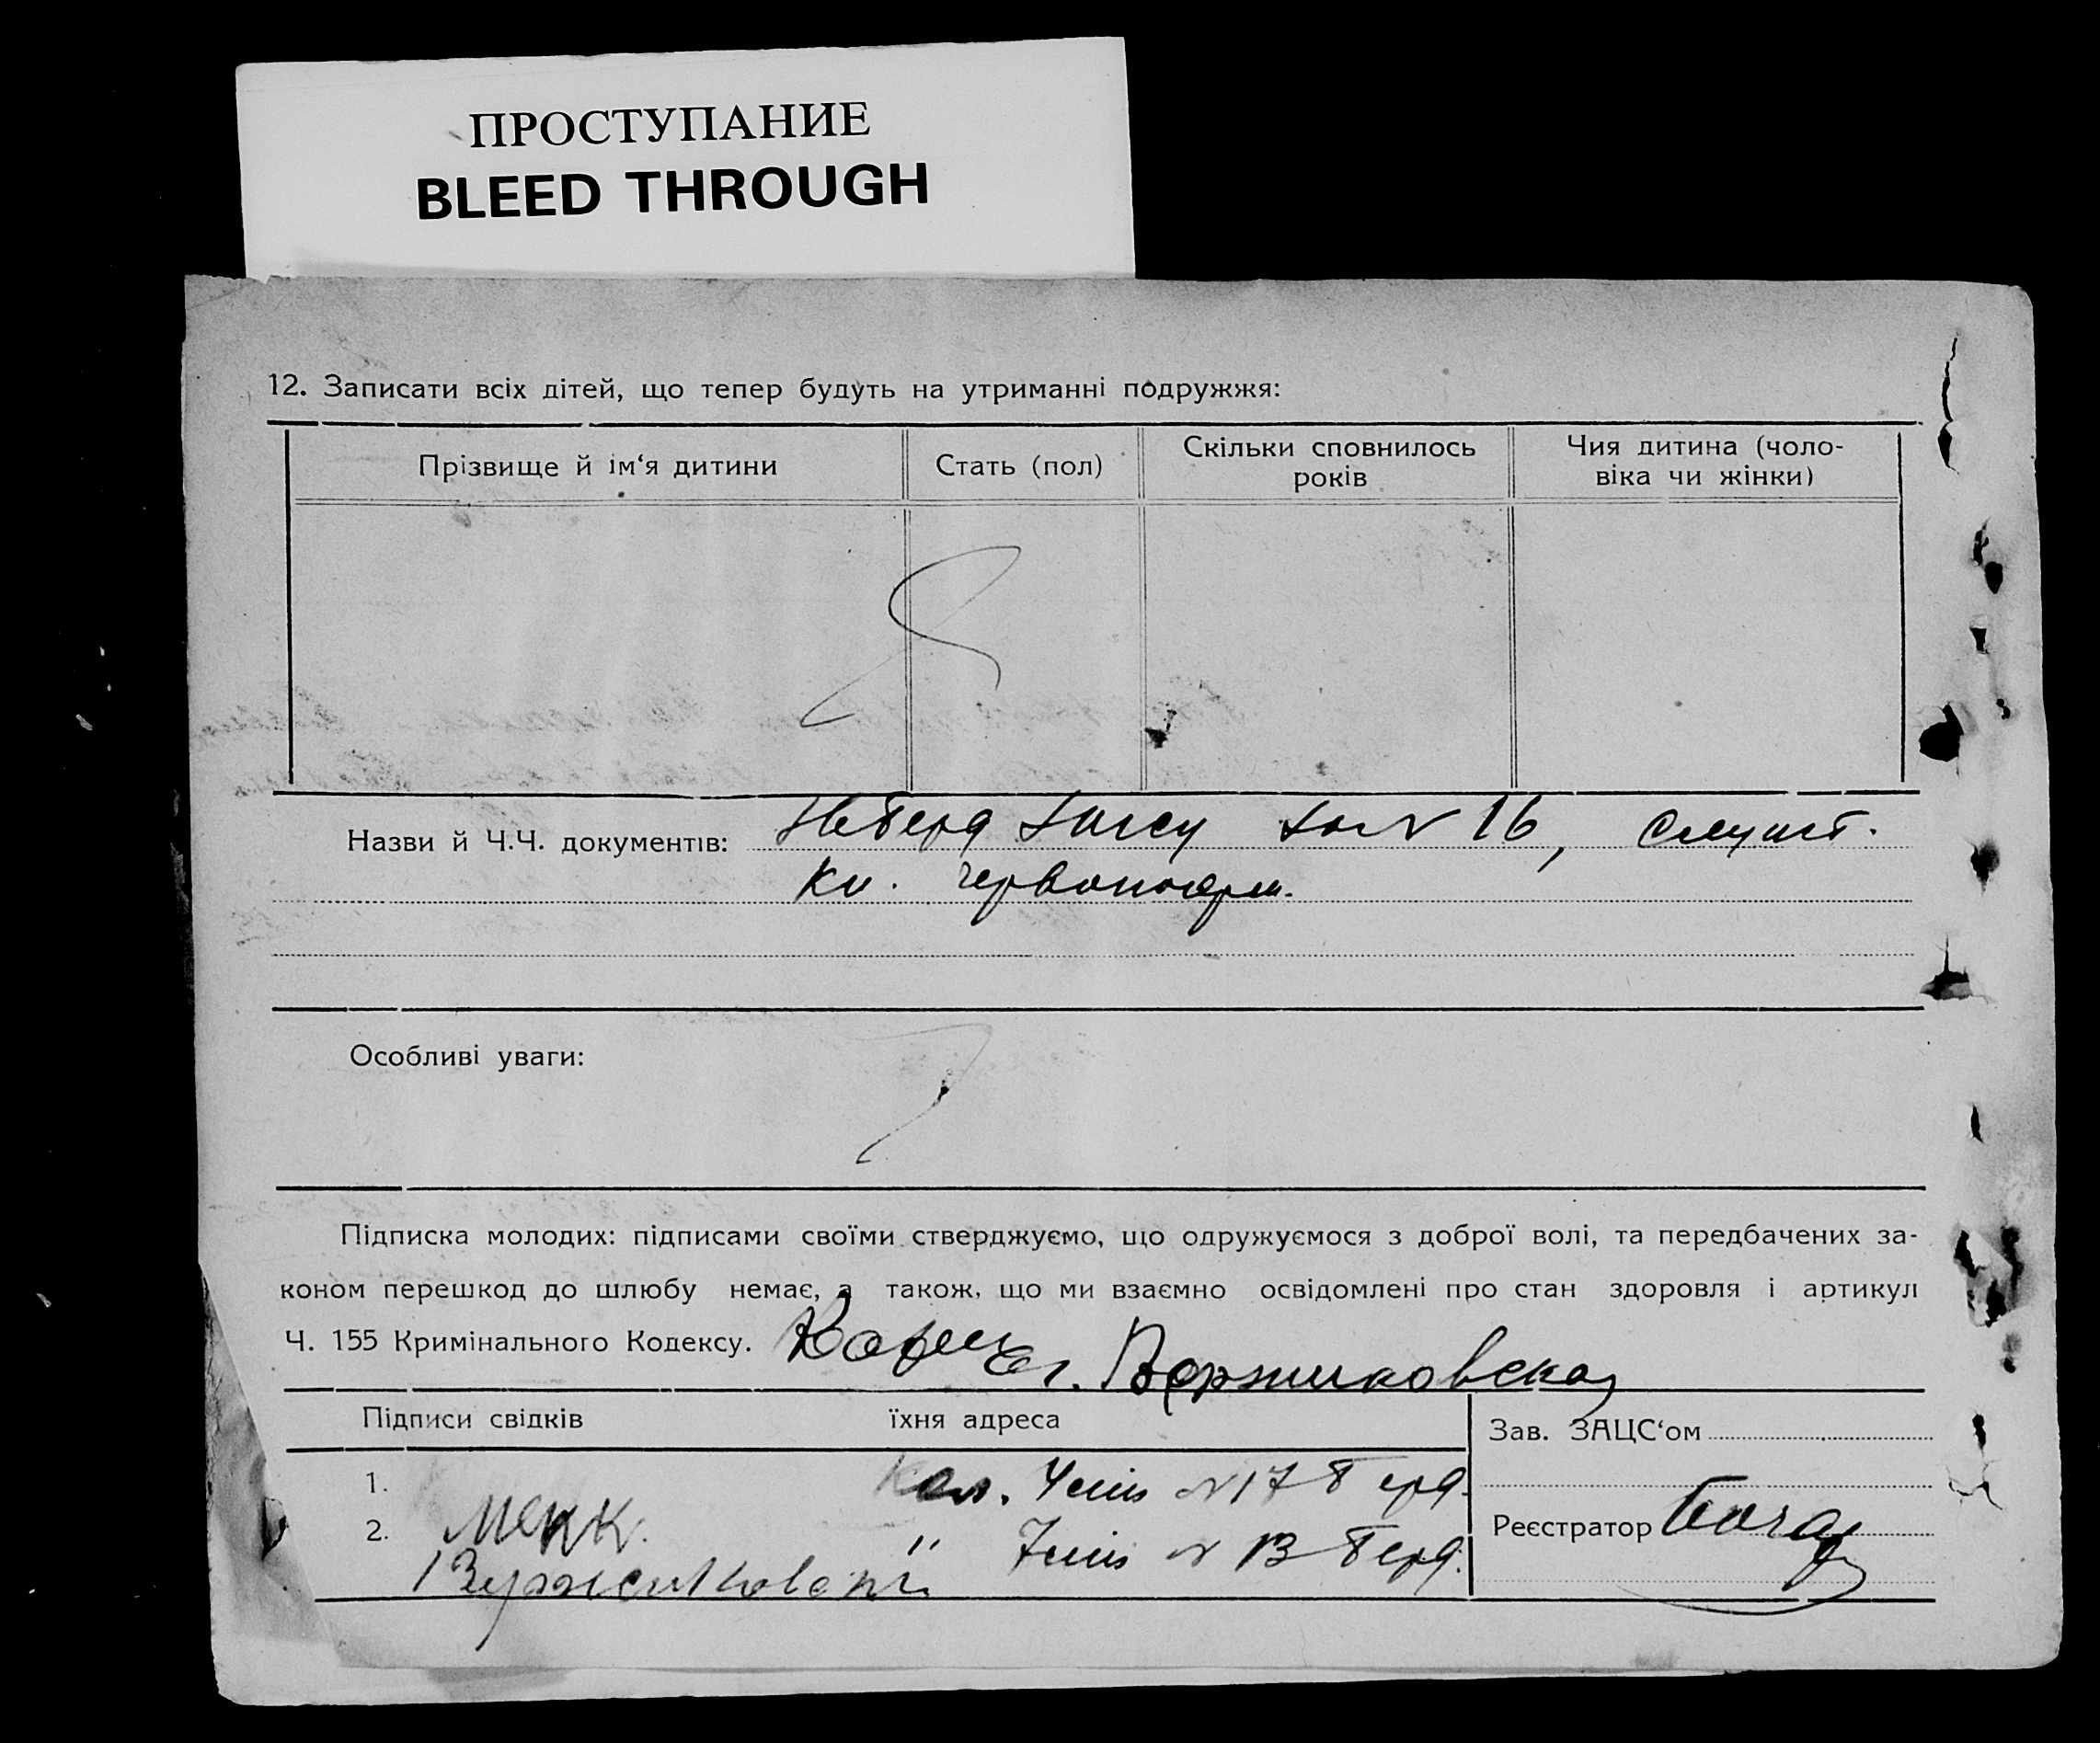 ПРОСТУПАНИЕ
BLEED THROUGH
12. Записати всіх дітей, що тепер будуть на утриманні подружжя:
Прізвище й ім‘я дитини
Стать (пол)
Скільки сповнилось
років
Чия дитина (чоло-
віка чи жінки)
Назви й Ч.Ч. документів: № 16,
Кн. червоноарм.
Особливі уваги:
Підписка молодих: підписами своїми стверджуємо, що одружуємося з доброї волі, та передбачених за-
коном перешкод до шлюбу немає, а також, що ми взаємно освідомлені про стан здоровля і артикул
Ч. 155 Кримінального Кодексу.
Підписи свідків
їхня адреса
Зав. ЗАЦС‘ом
1. Кол. 4 № 17 Берд.
2. „ 7 № 13 Берд.
Реєстратор